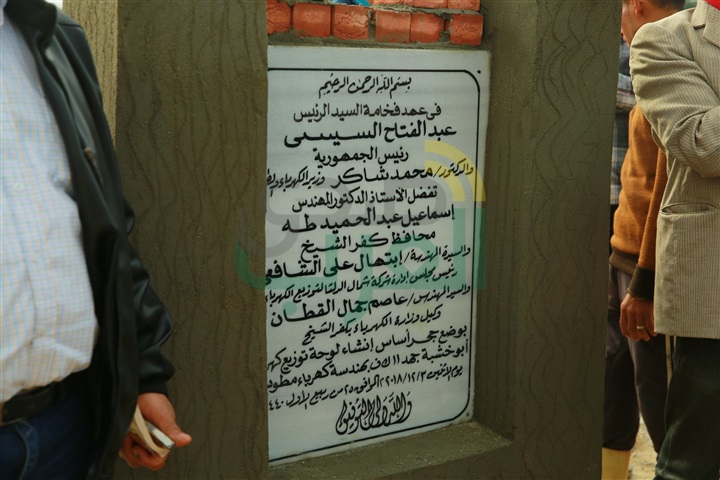 بسم الله الرحمن الرحيم
فى عهد فخامة السيد الرئيس
عبد الفتاح السيسى
رئيس الجمهورية
والدكتور/ محمد شاكر وزير الكهرباء والط
تفضل الأستاذ الدكتور المهندس
إسماعيل عبد الحميد طه
محافظ كفر الشيخ
والسيدة المهندسة/ إبتهال على الشافعى
رئيس مجلس إدارة شركة شمال الدلتا لتوزيع الكهرباء
والسيد المهندس/ عاصم جمال القطان
وكيل وزارة الكهرباء بكفر الشيخ
بوضع حجر أساس إنشاء لوحة توزيع كهر
أبو خشبة جهد ١١ ك ف بهندسة كهرباء مطوب
يوم الإثنين ٢٠١٨/١٢/٣ الموافق ٢٥ من ربيع الأول ١٤٤٠
والله ولى التوفيق